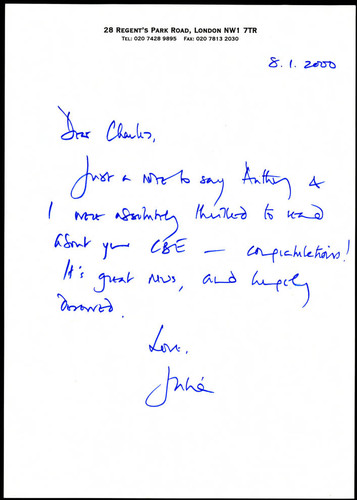 28 REGENT'S PARK ROAD, LONDON NW1 7TR
TEL: 020 7428 9895 FAX: 020 7813 2030
8.1.2000
Dear Charles,
Just a note to say Anthony &
I were absolutely thrilled to read
about your CBE – congratulations!
It's great news, and hugely
deserved.
Love,
Julia